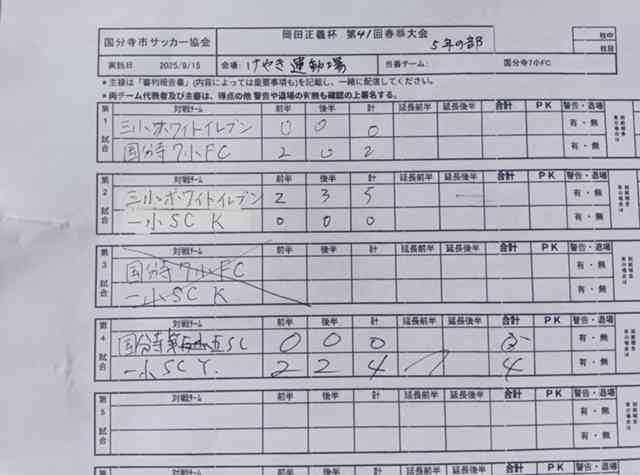 国分寺市サッカー協会 岡田正義杯 第41回春季大会 5年の部 枚中 枚目
実施日 2025/9/15 会場: けやき運動場 当番チーム: 国分寺7小FC
*主審は「審判報告書」(内容によっては重要事項も)を記載し、一緒に配信してください。
*両チーム代表者及び主審は、得点の他 警告や退場の有無も確認の上署名する。
第1試合 対戦チーム 前半 後半 計 延長前半 延長後半 合計 PK 警告・退場
三小ホワイトイレブン 0 0 0 有・無
国分寺7小FC 2 0 2 有・無
第2試合 対戦チーム 前半 後半 計 延長前半 延長後半 合計 PK 警告・退場
三小ホワイトイレブン 2 3 5 有・無
一小SC K 0 0 0 有・無
第3試合 対戦チーム 前半 後半 計 延長前半 延長後半 合計 PK 警告・退場
国分寺7小FC 有・無
一小SC K 有・無
第4試合 対戦チーム 前半 後半 計 延長前半 延長後半 合計 PK 警告・退場
国分寺第五SC 0 0 0 有・無
一小SC Y. 2 2 4 4 有・無
第5試合 対戦チーム 前半 後半 計 延長前半 延長後半 合計 PK 警告・退場
有・無
有・無
対戦チーム 前半 後半 計 延長前半 延長後半 合計 PK 警告・退場